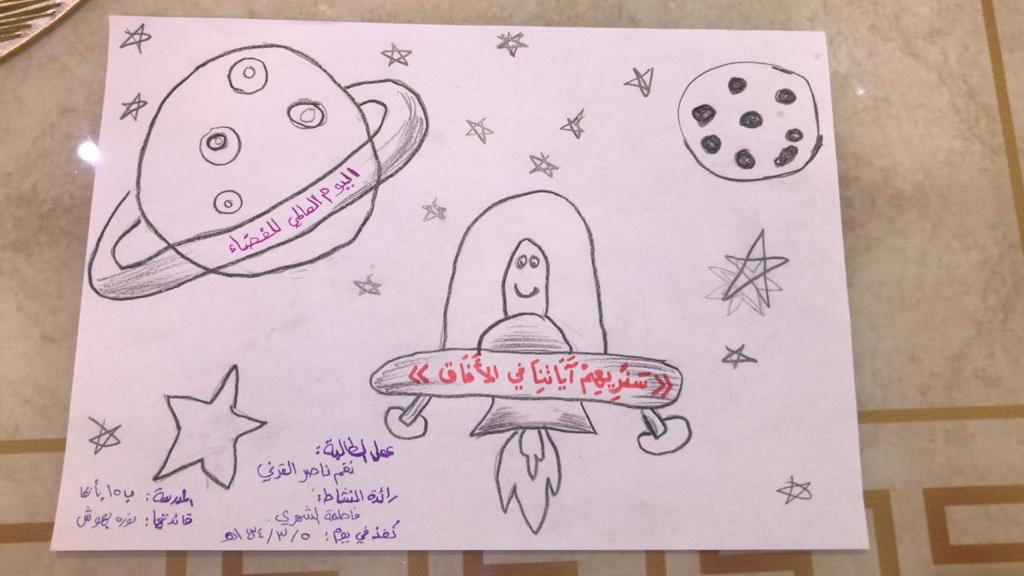 اليوم العالمي للفضاء
« سَنُرِيهِمْ آيَاتِنَا فِي الأَفَاق »
عمل الطالبة:
نغم ناصر القرني
رائدة النشاط:
فاطمة الشهري
نُفذ في يوم: ١٤٤٠/٣/٥هـ
المدرسة: ب١٥ بأبها
قائدتها: نوره